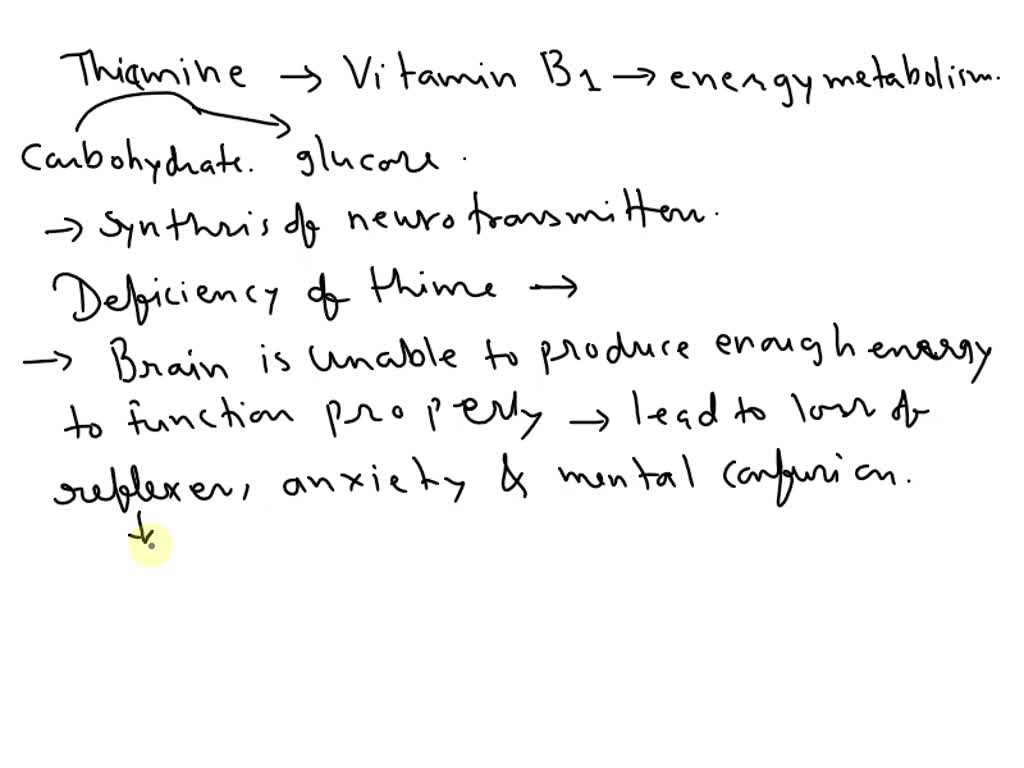 Thiamine → Vitamin B1 → energy metabolism.
Carbohydrate. glucose.
→ Synthris of neurotransmitter.
Deficiency of thime →
→ Brain is unable to produce enough energy
to function properly → lead to loss of
reflexes, anxiety & mental confusion.